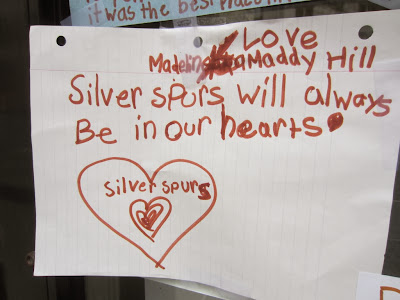 it was the best place in
Love
Madeline Maddy Hill
Silver spurs will always
Be in our hearts
silver spurs